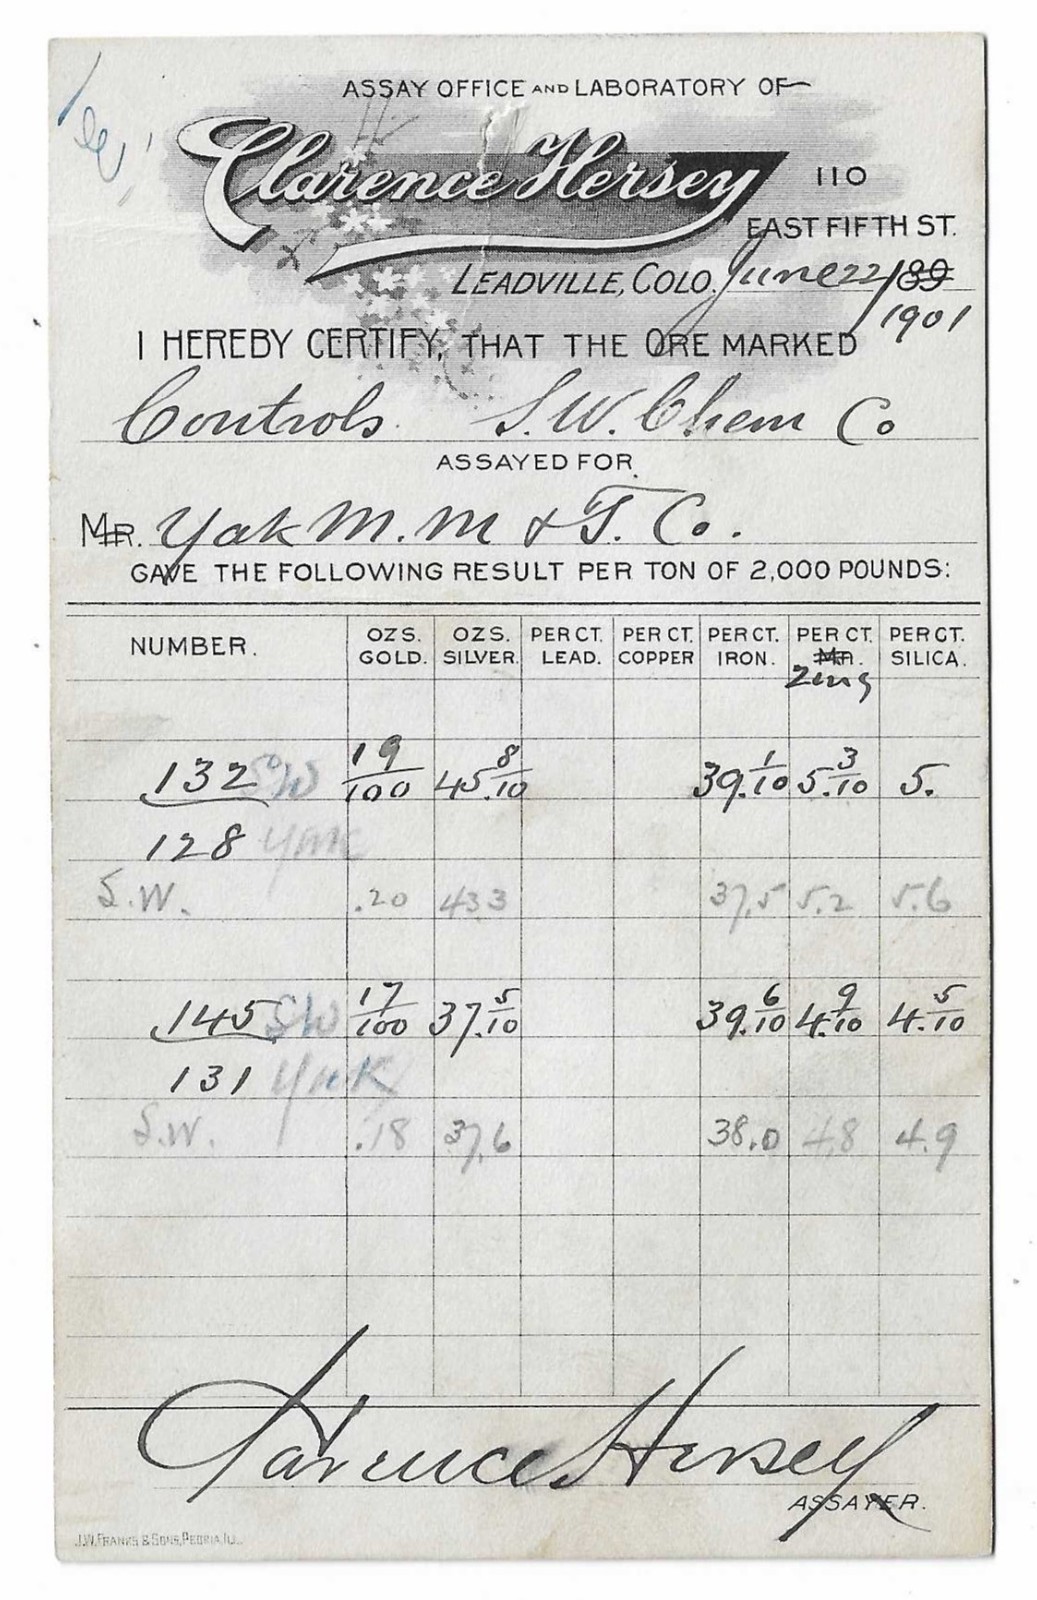 ASSAY OFFICE AND LABORATORY OF
Clarence Hersey
110
EAST FIFTH ST.
LEADVILLE, COLO. June 22 189
1901
I HEREBY CERTIFY, THAT THE ORE MARKED
Controls. S.W. Chem Co
ASSAYED FOR
MR. Yak M. M & T. Co.
GAVE THE FOLLOWING RESULT PER TON OF 2,000 POUNDS:
NUMBER. OZS. GOLD. OZS. SILVER. PER CT. LEAD. PER CT. COPPER PER CT. IRON. PER CT. Mn. PER CT. SILICA.
Zinc
132 SW 19/100 45.8/10 39.1/10 5.3/10 5.
128 Yak
S.W. .20 43.3 37.5 5.2 5.6
145 SW 17/100 37.5/10 39.6/10 4.9/10 4.5/10
131 Yak
S.W. .18 37.6 38.0 4.8 4.9
Clarence Hersey
ASSAYER.
J.W. FRANKS & SONS, PEORIA, ILL.